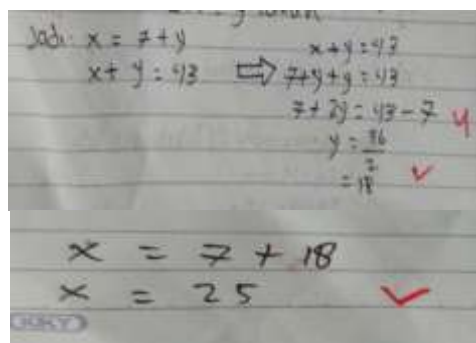 Jadi: x = 7 + y
x + y = 43
x + y = 43
⇒ 7+y+y = 43
7 + 2y = 43 - 7
y = 36/2
= 18
x = 7 + 18
x = 25